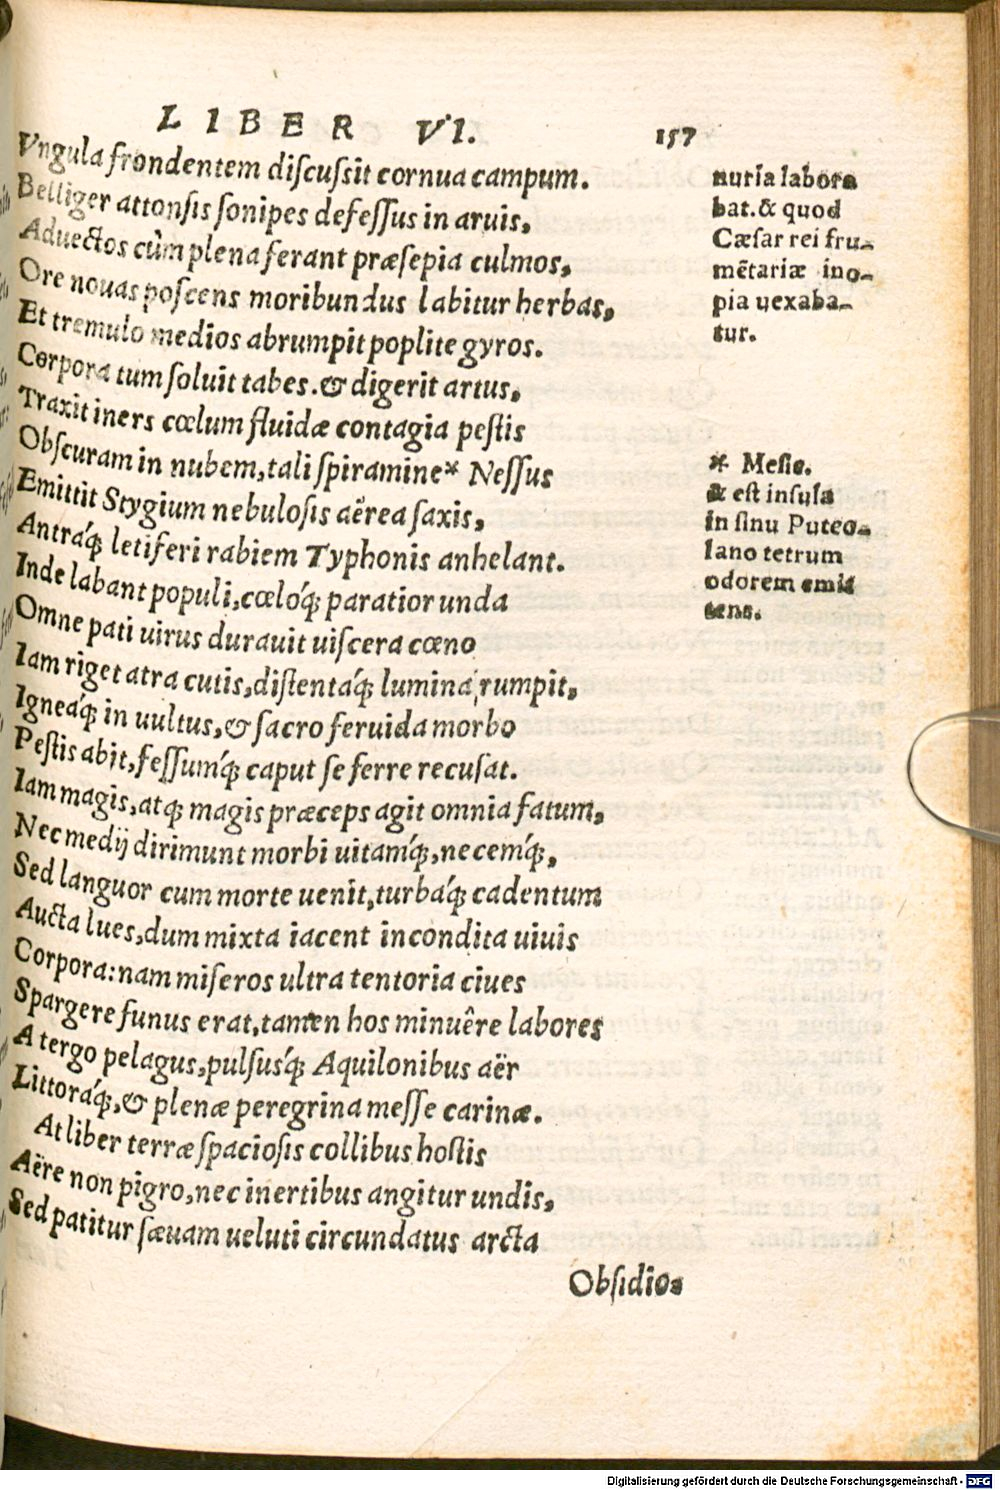 LIBER VI. 157
Vngula frondentem discussit cornua campum.
Belliger attonsis sonipes defessus in aruis,
Aduectos cùm plena ferant præsepia culmos,
Ore nouas poscens moribundus labitur herbas,
Et tremulo medios abrumpit poplite gyros.
Corpora tum soluit tabes. & digerit artus,
Traxit iners cœlum fluidæ contagia pestis
Obscuram in nubem, tali spiramine* Nessus
Emittit Stygium nebulosis aërea saxis,
Antráq; letiferi rabiem Typhonis anhelant.
Inde labant populi, cœlóq; paratior unda
Omne pati uirus durauit uiscera cœno
Iam riget atra cutis, distentáq; lumina rumpit,
Igneáq; in uultus, & sacro feruida morbo
Pestis abit, fessumq́; caput se ferre recusat.
Iam magis, atq; magis præceps agit omnia fatum,
Nec medij dirimunt morbi uitamq́;, necemq́;,
Sed languor cum morte uenit, turbáq; cadentum
Aucta lues, dum mixta iacent incondita uiuis
Corpora: nam miseros ultra tentoria ciues
Spargere funus erat, tamen hos minuêre labores
A tergo pelagus, pulsusq́; Aquilonibus aër
Littoráq;, & plenæ peregrina messe carinæ.
At liber terræ spaciosis collibus hostis
Aëre non pigro, nec inertibus angitur undis,
Sed patitur sæuam ueluti circundatus arcta
Obsidio-
nuria labora
bat. & quod
Cæsar rei fru-
mẽtariæ ino-
pia uexaba-
tur.
* Mesie.
& est insula
in sinu Puteo-
lano tetrum
odorem emit
tens.
Digitalisierung gefördert durch die Deutsche Forschungsgemeinschaft - DFG